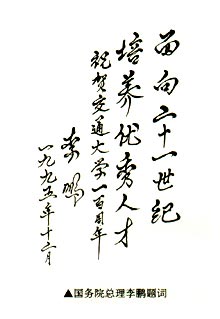 面向二十一世纪
培养优秀人才
祝贺交通大学一百周年
李鹏
一九九五年十二月
▲国务院总理李鹏题词